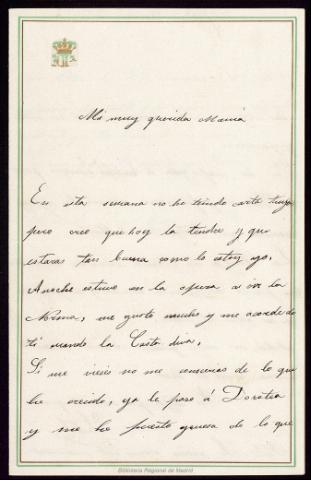 Mi muy querida Mamá
En esta semana no he tenido carta tuya
pero creo que hoy la tendre y que
estaras tan buena como lo estoy yo,
Anoche estuve en la opera a oir la
Norma, me gustó mucho y me acorde de
ti cuando la Casta diva,
Si me vieses no me conocerias de lo que
he crecido, ya le paso á Dorotea
y me he puesto gruesa de lo que
Biblioteca Regional de Madrid